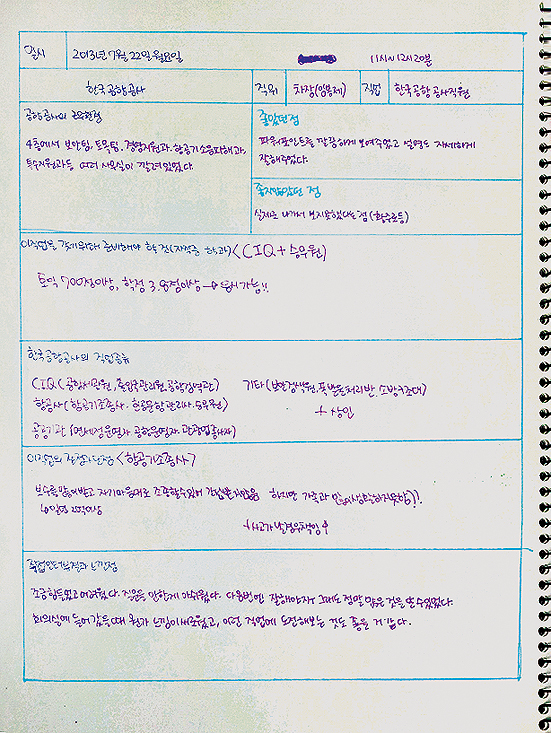 일시 2013년 7월 22일 월요일 11시~12시20분
한국공항공사 직위 차장(임용제) 직업 한국공항공사직원
공항공사의 근무현장
4층에서 보안팀, 토목팀, 경영지원과, 항공기소음피해과,
특수지원과등 여러 사무실이 깔려있었다.
좋았던점
파워포인트를 깔끔하게 보여주었고 설명도 자세하게
잘해주었다.
좋지않았던 점
실제로 나가서 보지못했다는 점 (활주로등)
이직업을 갖기위해 준비해야 할 것(자격증 학과) <CIQ + 승무원>
토익 700점이상, 학점 3.8점이상 → 응시가능!!
한국공항공사의 직업종류
CIQ (공항세관원, 출입국관리원, 공항검역관)
항공사 (항공기조종사. 항공운항관리사. 승무원)
공공기관 (면세점운영자 공항운영자. 관광업종사자)
기타 (보안검색원, 폭발물처리반, 소방구조대)
+ 상인
이직업의 장점과 단점 <항공기조종사>
보수를 많이받고 자기마음대로 조종할수있어 간섭받지않음 하지만 가족과
1억이상
+사고가 날경우 책임↑
직접인터뷰한 느낀점
조금힘들었고 어려웠다. 질문을 안한게 아쉬웠다. 다음번엔 잘해야지. 그래도 정말 많은 것을 알수있었다.
회의실에 들어갔을때 뭔가 느낌이새로웠고, 이런 직업에 도전해보는 것도 좋을 거 같다.